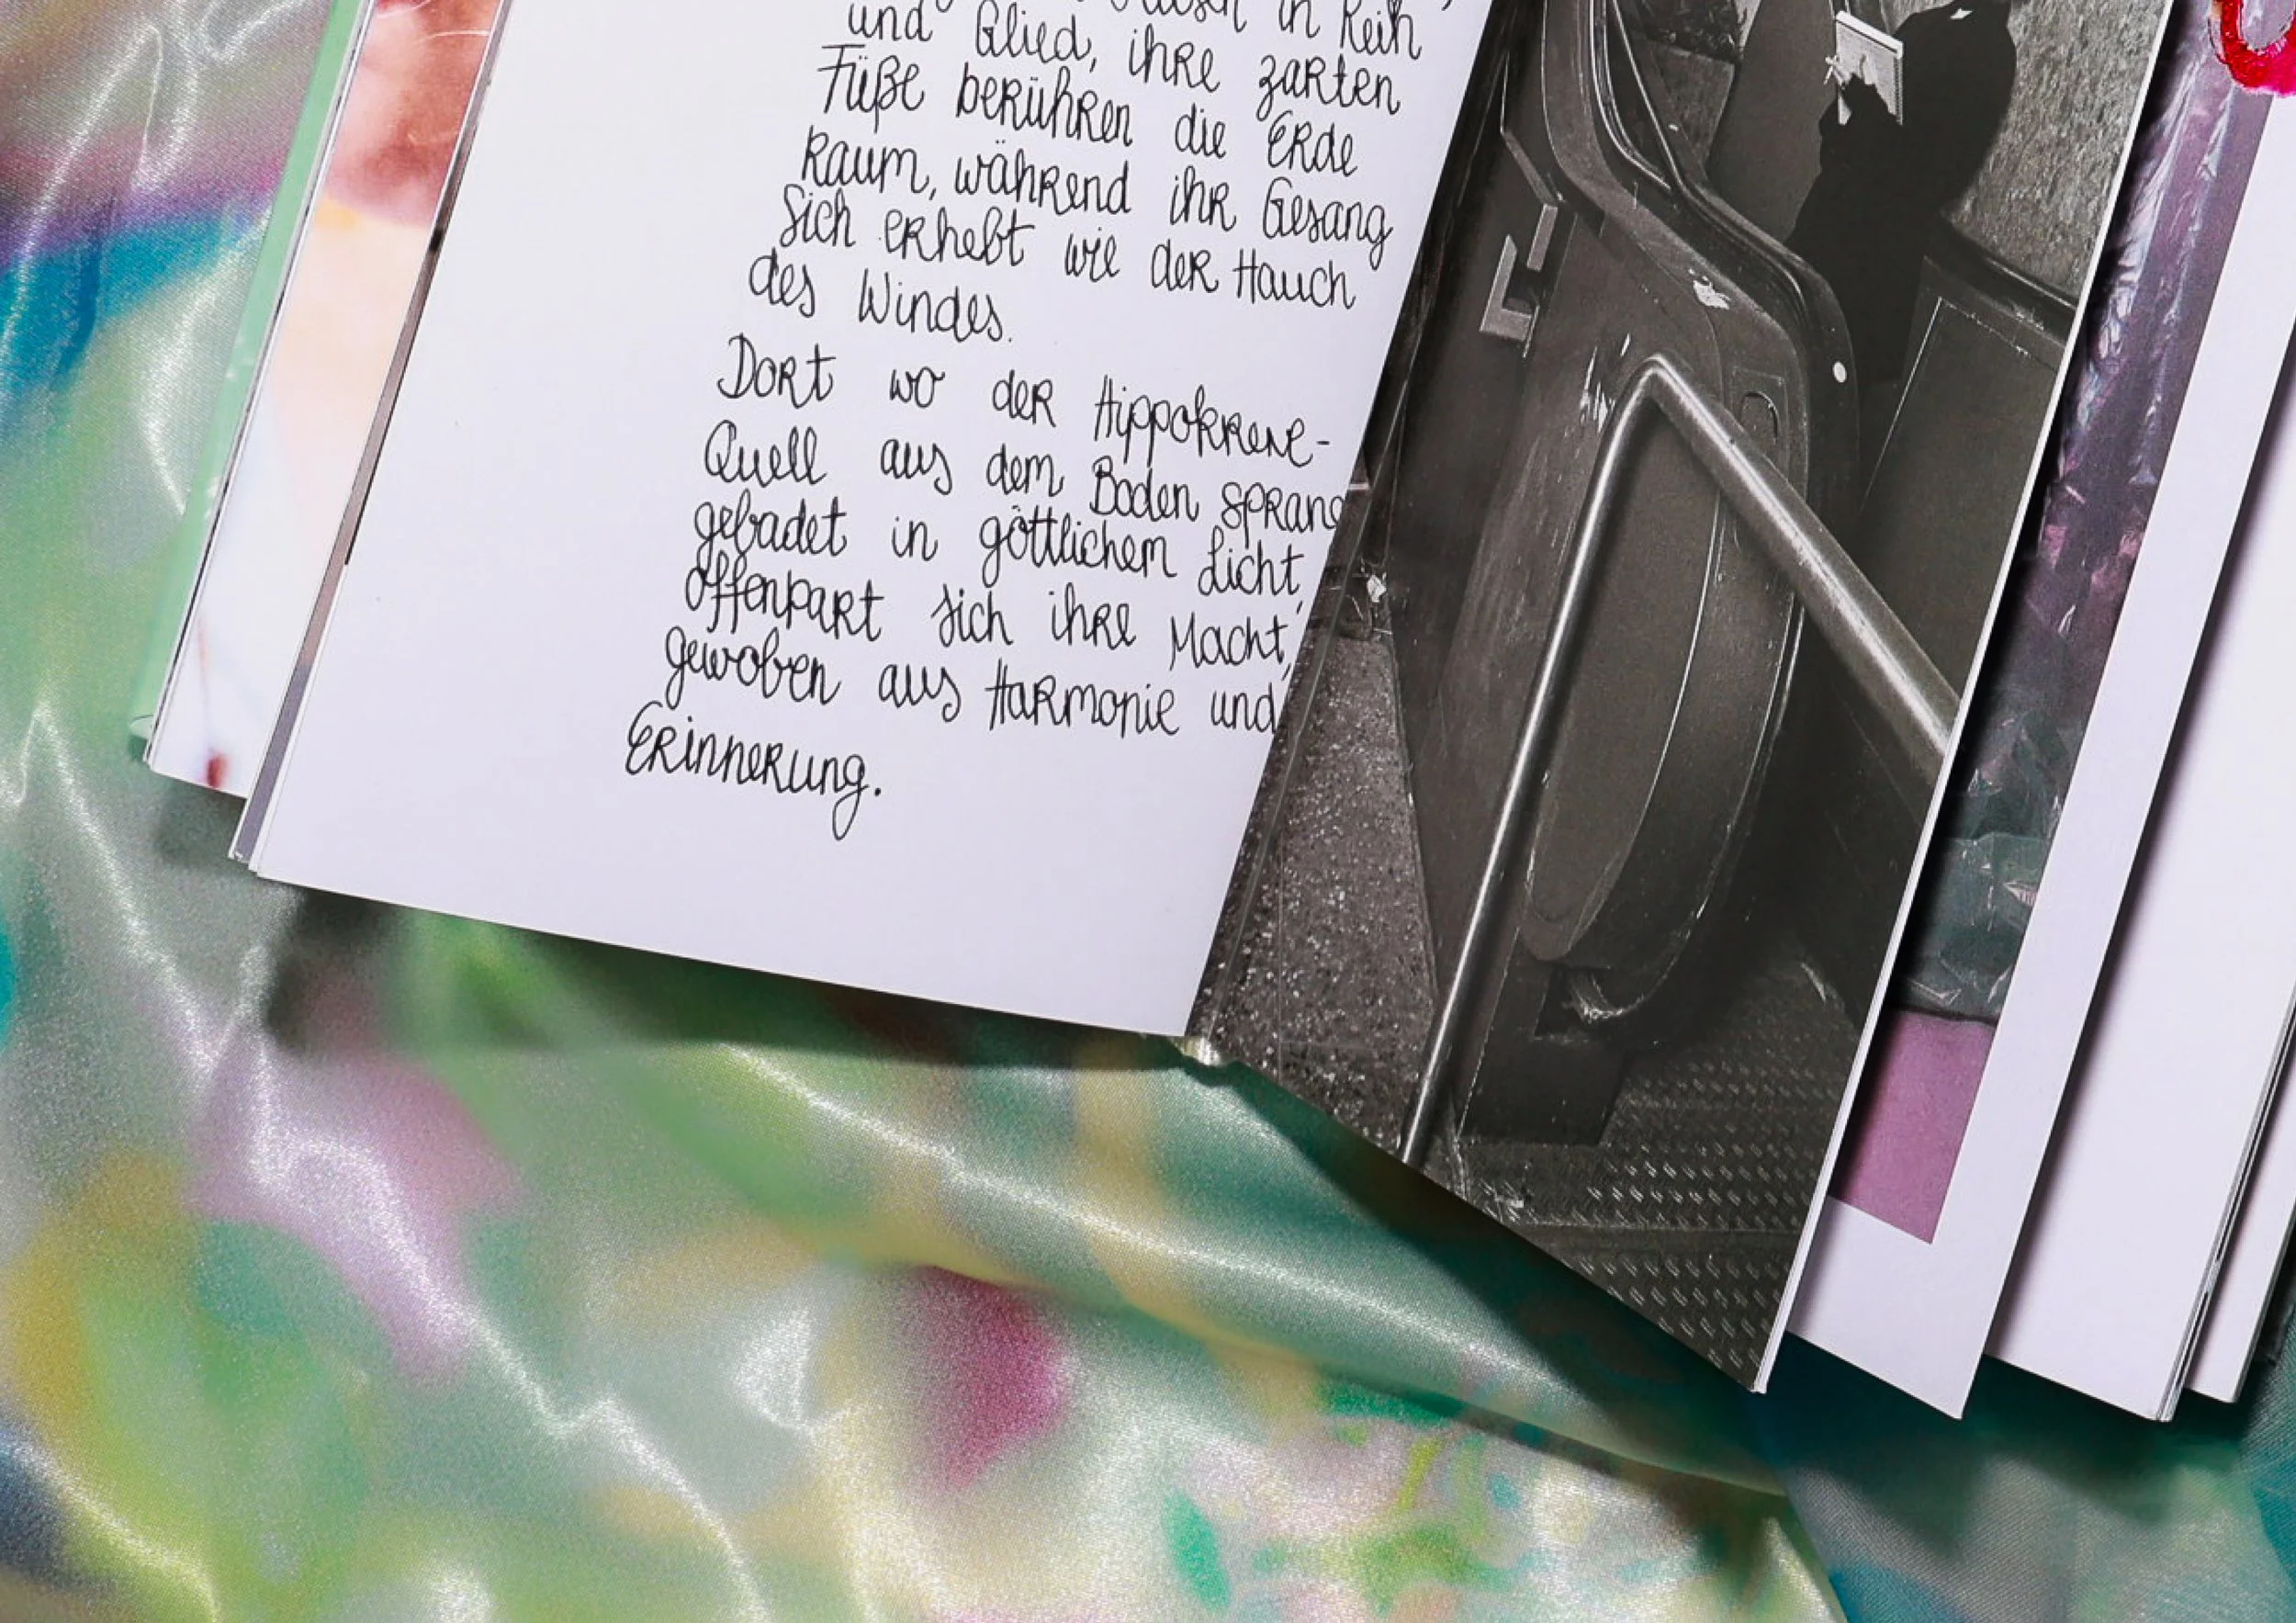 in Reih
und Glied, ihre zarten
Füße berühren die Erde
kaum, während ihr Gesang
sich erhebt wie der Hauch
des Windes.
Dort wo der Hippokrene-
Quell aus dem Boden sprang
gebadet in göttlichem Licht,
offenpart sich ihre Macht,
gewoben aus Harmonie und
Erinnerung.